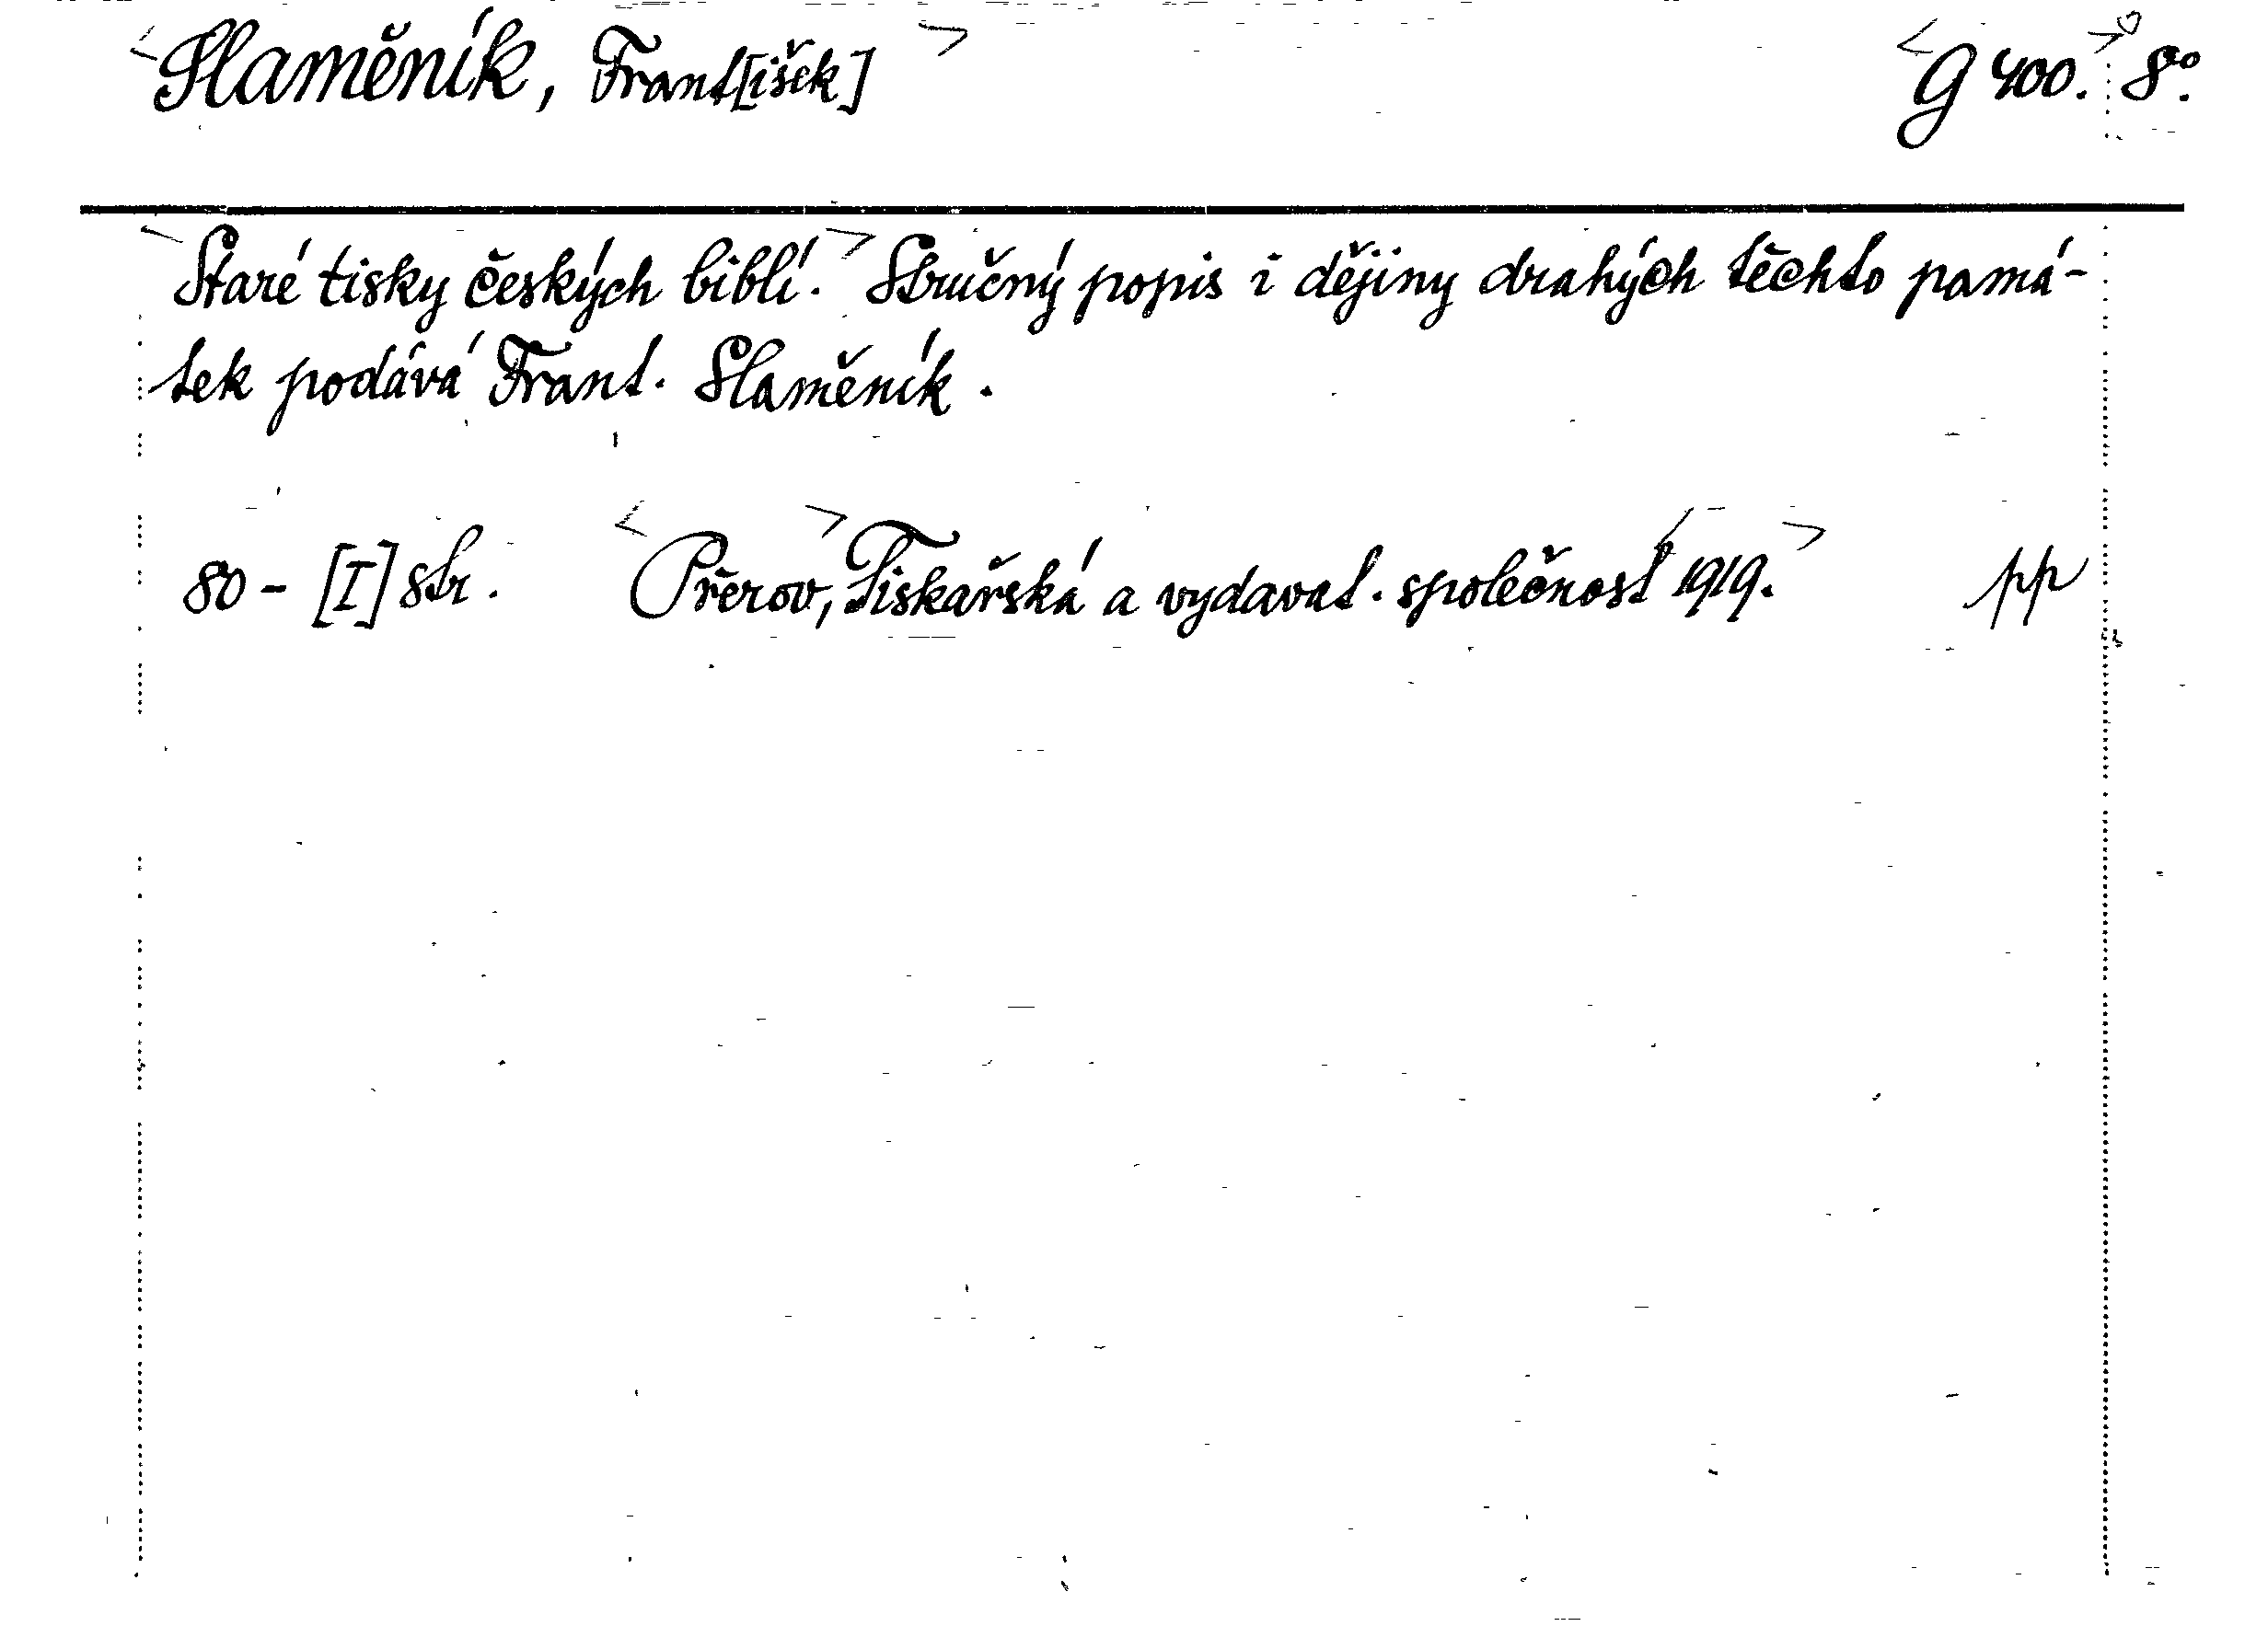 Slaměník, Frant[išek] G 400. 8°.
Staré tisky českých biblí. Stručný popis i dějiny drahých těchto pamá-
tek podává Frant. Slaměník.
80 - [I] str. Přerov, Tiskařská a vydavat. společnost 1919. pp